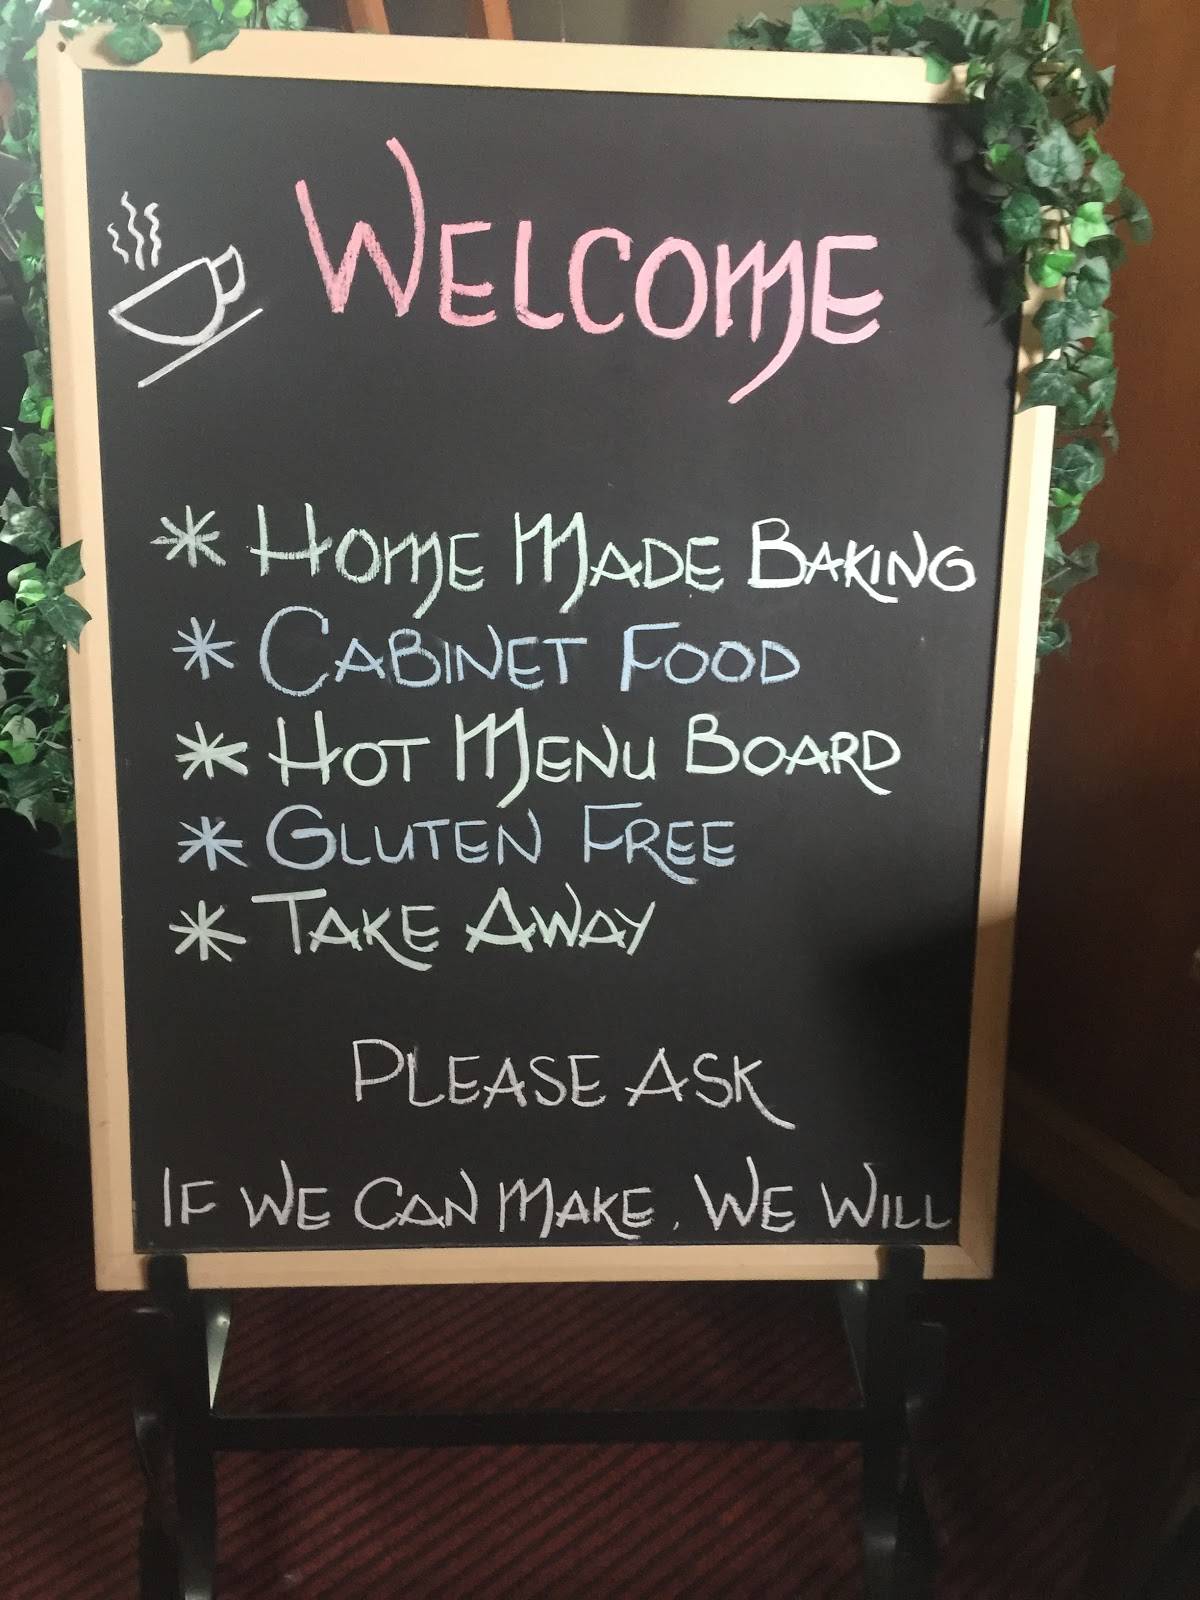 WELCOME
* HOME MADE BAKING
* CABINET FOOD
* HOT MENU BOARD
* GLUTEN FREE
* TAKE AWAY
PLEASE ASK
IF WE CAN MAKE, WE WILL